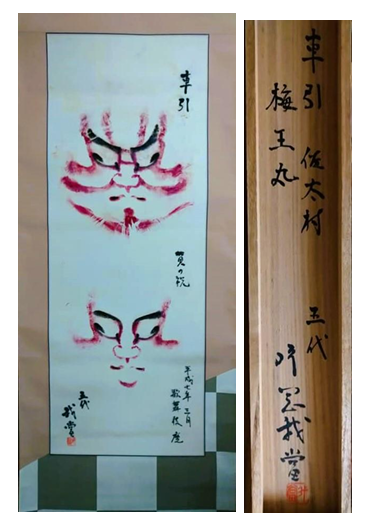 車引
賀の祝
平成七年三月
歌舞伎座
五代
我當
車引 佐太村
梅王丸
五代
片岡我當